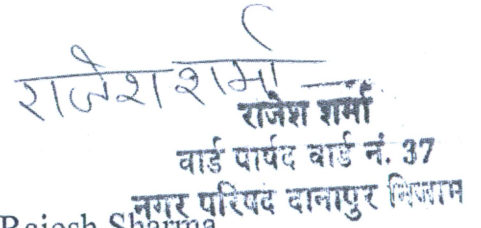 राजेश शर्मा
राजेश शर्मा
वार्ड पार्षद वार्ड नं. 37
नगर परिषद दानापुर निजाम
Rajesh Sharma